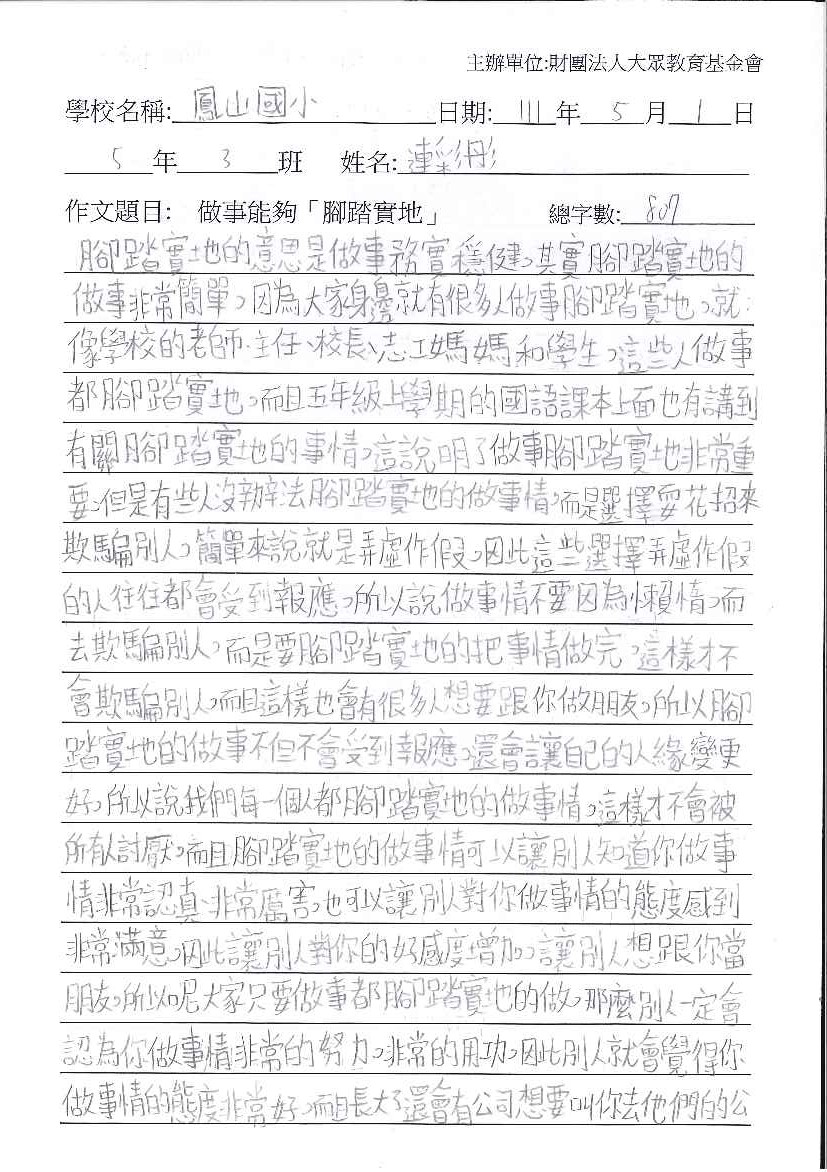 主辦單位:財團法人大眾教育基金會
學校名稱: 鳳山國小 日期: 111 年 5 月 1 日
5 年 3 班 姓名: 連彩彤
作文題目: 做事能夠「腳踏實地」 總字數: 807
腳踏實地的意思是做事務實穩健,其實腳踏實地的
做事非常簡單,因為大家身邊就有很多人做事腳踏實地,就
像學校的老師、主任、校長、志工媽媽和學生,這些人做事
都腳踏實地,而且五年級上學期的國語課本上面也有講到
有關腳踏實地的事情,這說明了做事腳踏實地非常重
要,但是有些人沒辦法腳踏實地的做事情,而是選擇耍花招來
欺騙別人,簡單來說就是弄虛作假,因此這些選擇弄虛作假
的人往往都會受到報應,所以說做事情不要因為懶惰,而
去欺騙別人,而是要腳踏實地的把事情做完,這樣才不
會欺騙別人,而且這樣也會有很多人想要跟你做朋友,所以腳
踏實地的做事不但不會受到報應,還會讓自己的人緣變更
好,所以說我們每一個人都腳踏實地的做事情,這樣才不會被
所有人討厭,而且腳踏實地的做事情可以讓別人知道你做事
情非常認真、非常厲害,也可以讓別人對你做事情的態度感到
非常滿意,因此讓別人對你的好感度增加,讓別人想跟你當
朋友,所以呢大家只要做事都腳踏實地的做,那麼別人一定會
認為你做事情非常的努力,非常的用功,因此別人就會覺得你
做事情的態度非常好,而且長大了還會有公司想要叫你去他們的公